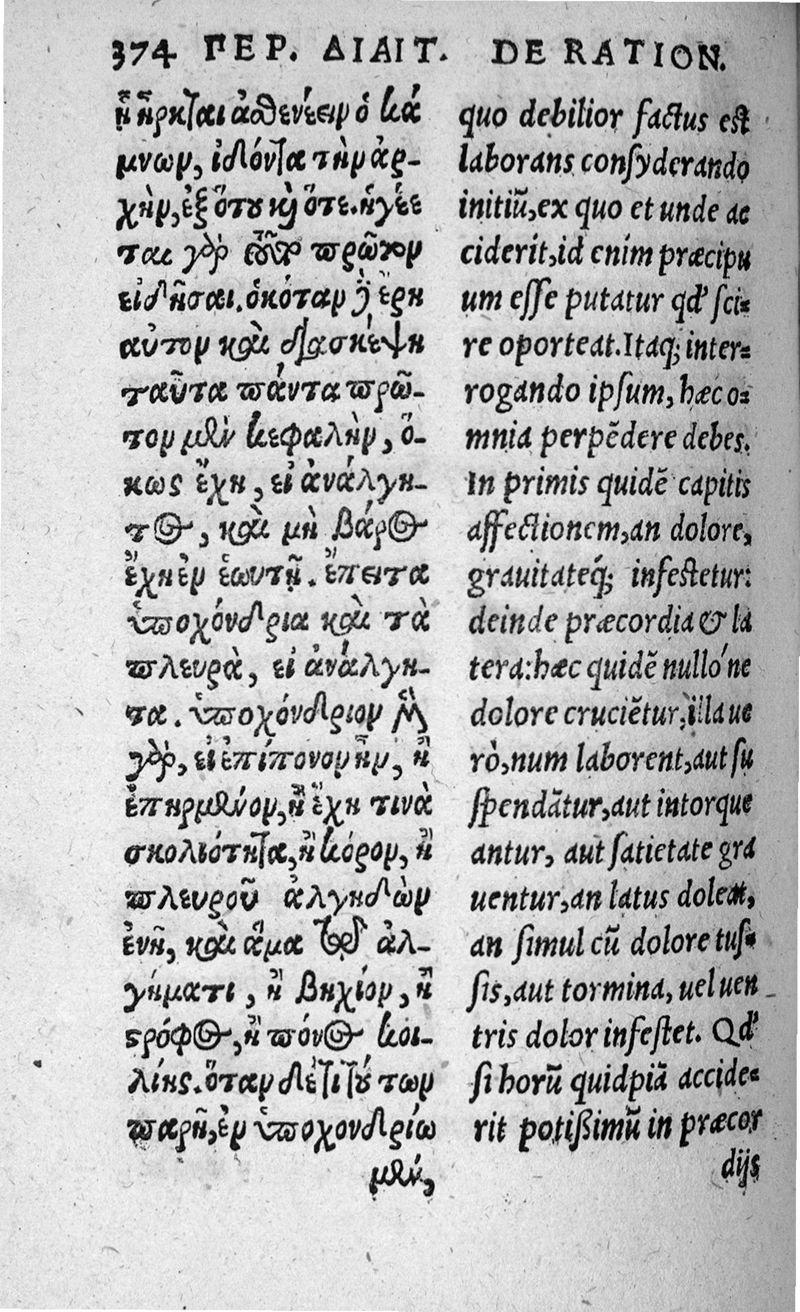 374 ΠΕΡ. ΔΙΑΙΤ. DE RATION.
ᾗ ἦρκται ἀσθενέειν ὁ κά
μνων, ἰδόντα τὴν ἀρ-
χὴν, ἐξ ὅτου καὶ ὅτε. ἡγέε
ται γὰρ τοῦτο πρῶτον
εἰδῆσαι. ὁκόταν δ' ἔρη
αὐτὸν καὶ διασκέψη
ταῦτα πάντα πρῶ-
τον μὲν κεφαλὴν, ὅ-
κως ἔχη, εἰ ἀνάλγη-
τος, καὶ μὴ βάρος
ἔχη ἐν ἑωυτῇ. ἔπειτα
ὑποχόνδρια καὶ τὰ
πλευρὰ, εἰ ἀνάλγη-
τα. ὑποχόνδριον μὲν
γὰρ, εἰ ἐπίπονον ἦν, ἢ
ἐπηρμένον, ἢ ἔχη τινὰ
σκολιότητα, ἢ κόρον, ἢ
πλευροῦ ἀλγηδὼν
ἐνῇ, καὶ ἅμα τῷ ἀλ-
γήματι, ἢ βηχίον, ἢ
στρόφος, ἢ πόνος κοι-
λίης. ὅταν δέ τι τούτων
παρῇ, ἐν ὑποχονδρίω
μὲν,
quo debilior factus est
laborans considyerando
initiũ, ex quo et unde ac
ciderit, id enim præcipu
um esse putatur qđ sci-
re oporteat. Itaq; inter-
rogando ipsum, hæc o-
mnia perpẽdere debes.
In primis quidẽ capitis
affectionem, an dolore,
grauitateq́; infestetur:
deinde præcordia & la
tera: hæc quidẽ nullo'ne
dolore cruciẽtur, illa ue
rò, num laborent, aut su
spendãtur, aut intorque
antur, aut satietate gra
uentur, an latus doleat,
an simul cũ dolore tus-
sis, aut tormina, uel uen
tris dolor infestet. Qđ
si horũ quidpiã accide-
rit potißimũ in præcor
dijs